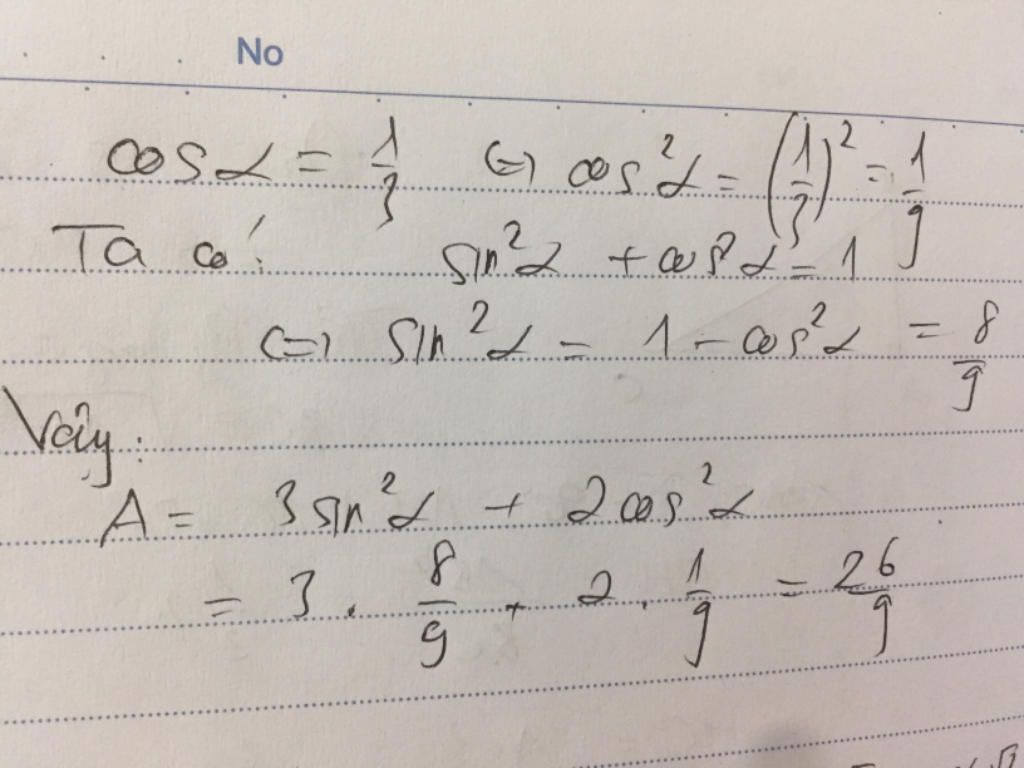 No
cos α = 1/3 (=) cos²α = (1/3)² = 1/9
Ta có: sin²α + cos²α = 1
(=) sin²α = 1 - cos²α = 8/9
Vậy:
A = 3 sin²α + 2 cos²α
= 3 . 8/9 + 2 . 1/9 = 26/9